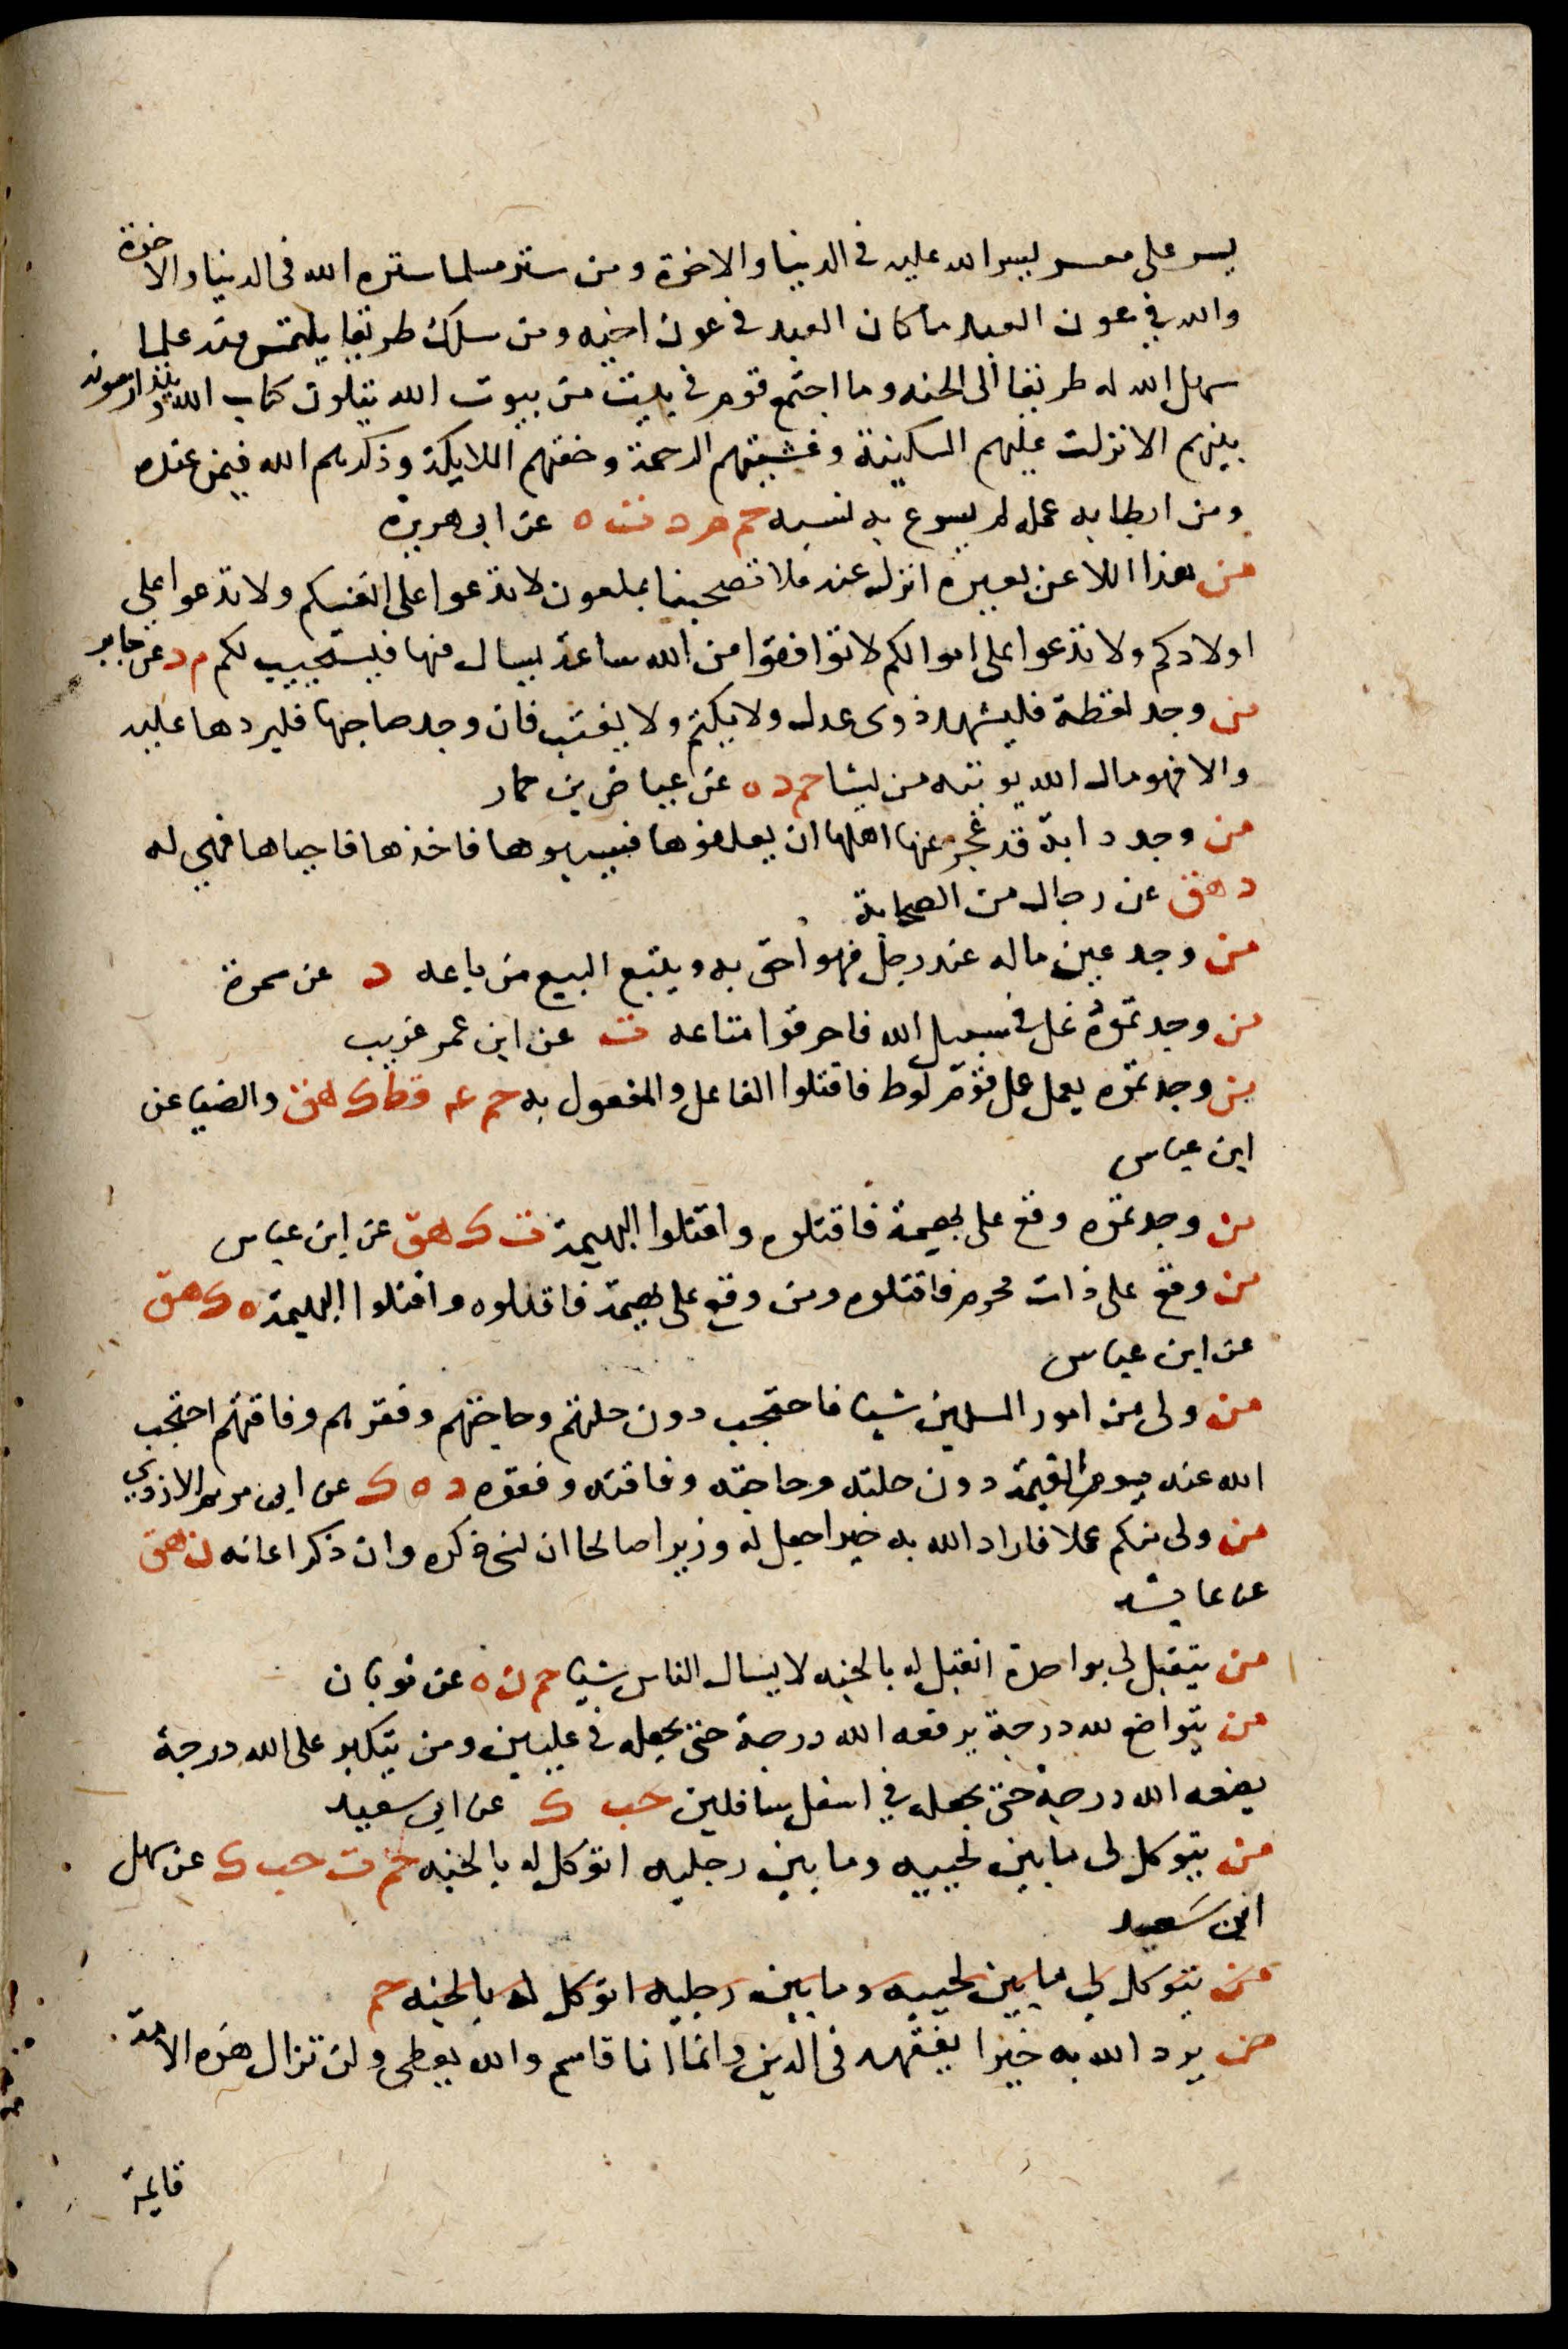 يسر على معسر يسر الله عليه في الدنيا والاخرة ومن ستر مسلما ستره الله في الدنيا والاخرة
والله في عون العبد ما كان العبد في عون اخيه ومن سلك طريقا يلتمس فيه علما
سهل الله له طريقا الى الجنه وما اجتمع قوم في بيت من بيوت الله يتلون كتاب الله ويتدارسونه
بينهم الا نزلت عليهم السكينة وغشيتهم الرحمة وحفتهم الملايكة وذكرهم الله فيمن عنده
ومن ابطا به عمله لم يسرع به نسبه حم م د ت ه عن ابي هريرة
من هذا اللاعن بعيره انزل عنه فلا تصحبنا بملعون لا تدعوا على انفسكم ولا تدعوا على
اولادكم ولا تدعوا على اموالكم لا توافقوا من الله ساعة يسال فيها فيستجيب لكم م د عن جابر
من وجد لقطة فليشهد ذوى عدل ولا يكتم ولا يغيب فان وجد صاحبها فليردها عليه
والا فهو مال الله يوتيه من يشا حم د ه عن عياض بن حمار
من وجد دابة قد عجز عنها اهلها ان يعلفوها فسيبوها فاخذها فاحياها فهي له
د هق عن رجال من الصحابة
من وجد عين ماله عند رجل فهو احق به ويتبع البيع من باعه د عن سمرة
من وجدتموه غل في سبيل الله فاحرقوا متاعه ت عن ابن عمر غريب
من وجدتموه يعمل عمل قوم لوط فاقتلوا الفاعل والمفعول به حم عه قط ك هق والضيا عن
ابن عباس
من وجدتموه وقع على بهيمة فاقتلوه واقتلوا البهيمة ت ك هق عن ابن عباس
من وقع على ذات محرم فاقتلوه ومن وقع على بهيمة فاقتلوه واقتلوا البهيمة ه ك هق
عن ابن عباس
من ولى من امور المسلمين شيا فاحتجب دون خلتهم وحاجتهم وفقرهم وفاقتهم احتجب
الله عنه يوم القيمة دون خلته وحاجته وفاقته وفقره د ه ك عن ابي مريم الازدي
من ولى منكم عملا فاراد الله به خيرا جعل له وزيرا صالحا ان نسي ذكره وان ذكر اعانه ن هق
عن عايشه
من يتقبل لي بواحدة اتقبل له بالجنه لا يسال الناس شيا حم ن ه عن ثوبان
من يتواضع لله درجة يرفعه الله درجة حتى يجعله في عليين ومن يتكبر على الله درجة
يضعه الله درجة حتى يجعله في اسفل سافلين حب ك عن ابي سعيد
من يتوكل لي ما بين لحييه وما بين رجليه اتوكل له بالجنه حم ت حب ك عن سهل
ابن سعيد
من يتوكل لي ما بين لحييه وما بين رجليه اتوكل له بالجنه حم
من يرد الله به خيرا يفقهه في الدين وانما انا قاسم والله يعطى ولن تزال هذه الامة
قايمة